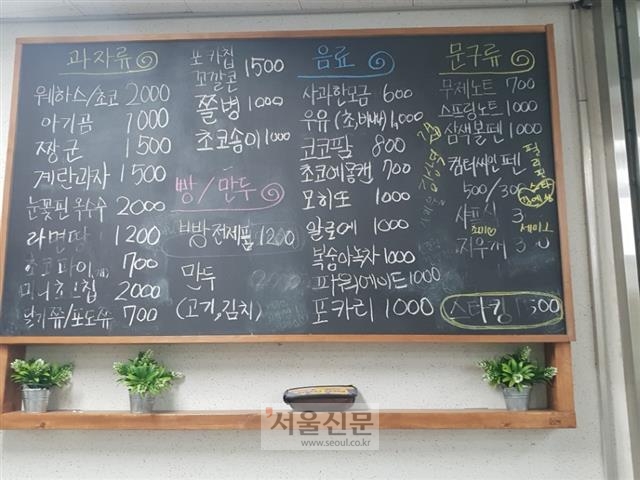 과자류
웨하스/초코 2000
아기곰 1000
짱군 1500
계란과자 1500
눈꽃핀 옥수수 2000
라면땅 1200
초코파이 700
미니초코칩 2000
딸기쮸/포도쮸 700
포카칩
꼬깔콘 1500
쫄병 1000
초코송이 1000
빵/만두
빵 전제품 1200
만두
(고기,김치)
음료
사과한모금 600
우유 (초,바,빠) 1,000
코코팜 800
초코에몽캔 700
모히또 1000
알로에 1000
복숭아녹차 1000
파워에이드 1000
포카리 1000
문구류
무제노트 700
스프링노트 1000
삼색볼펜 1000
컴터싸인펜
500/300
샤프심
지우개
스타킹
서울신문
www.seoul.co.kr